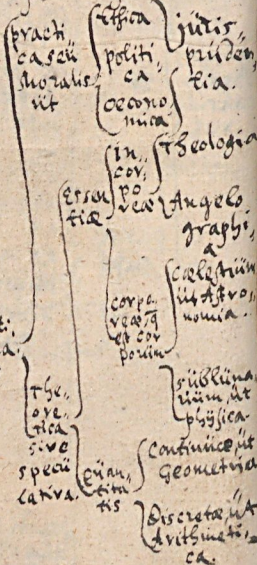 practi-
ca seu
Moralis
ut
Ethica
politi-
ca
oecono-
mica
juris-
pruden-
tia.
The-
ore-
tica
sive
specu-
lativa.
Essen-
tiæ
in-
cor-
po-
reæ
Theologia
Angelo
graphi-
a
corpo-
reæq́
et cor
porum
cœlestium
ut Astro-
nomia.
sublüna-
rium, ut
physica.
Qüan-
tita-
tis
Continuæ, ut
Geometria
Discretæ, ut
Arithmeti-
ca.